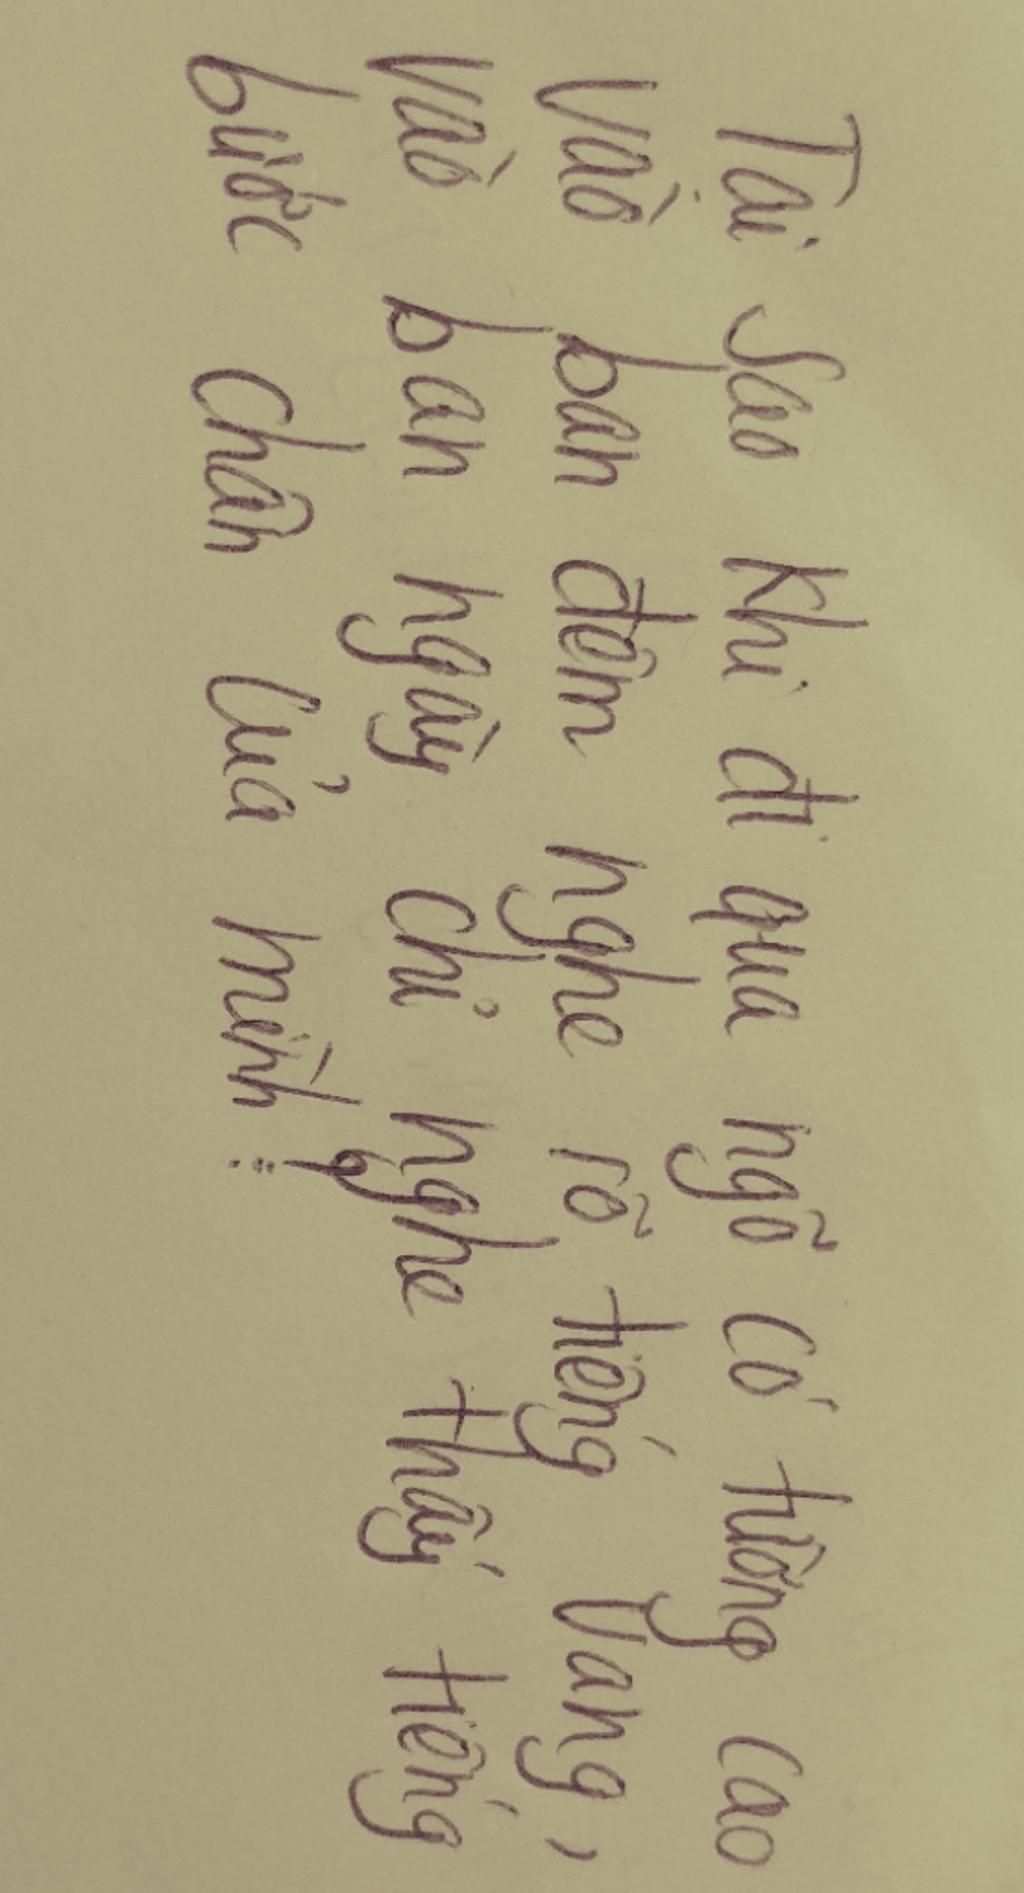 Tại sao khi đi qua ngõ có tường cao
vào ban đêm nghe rõ tiếng vang,
vào ban ngày chỉ nghe thấy tiếng
bước chân của mình?